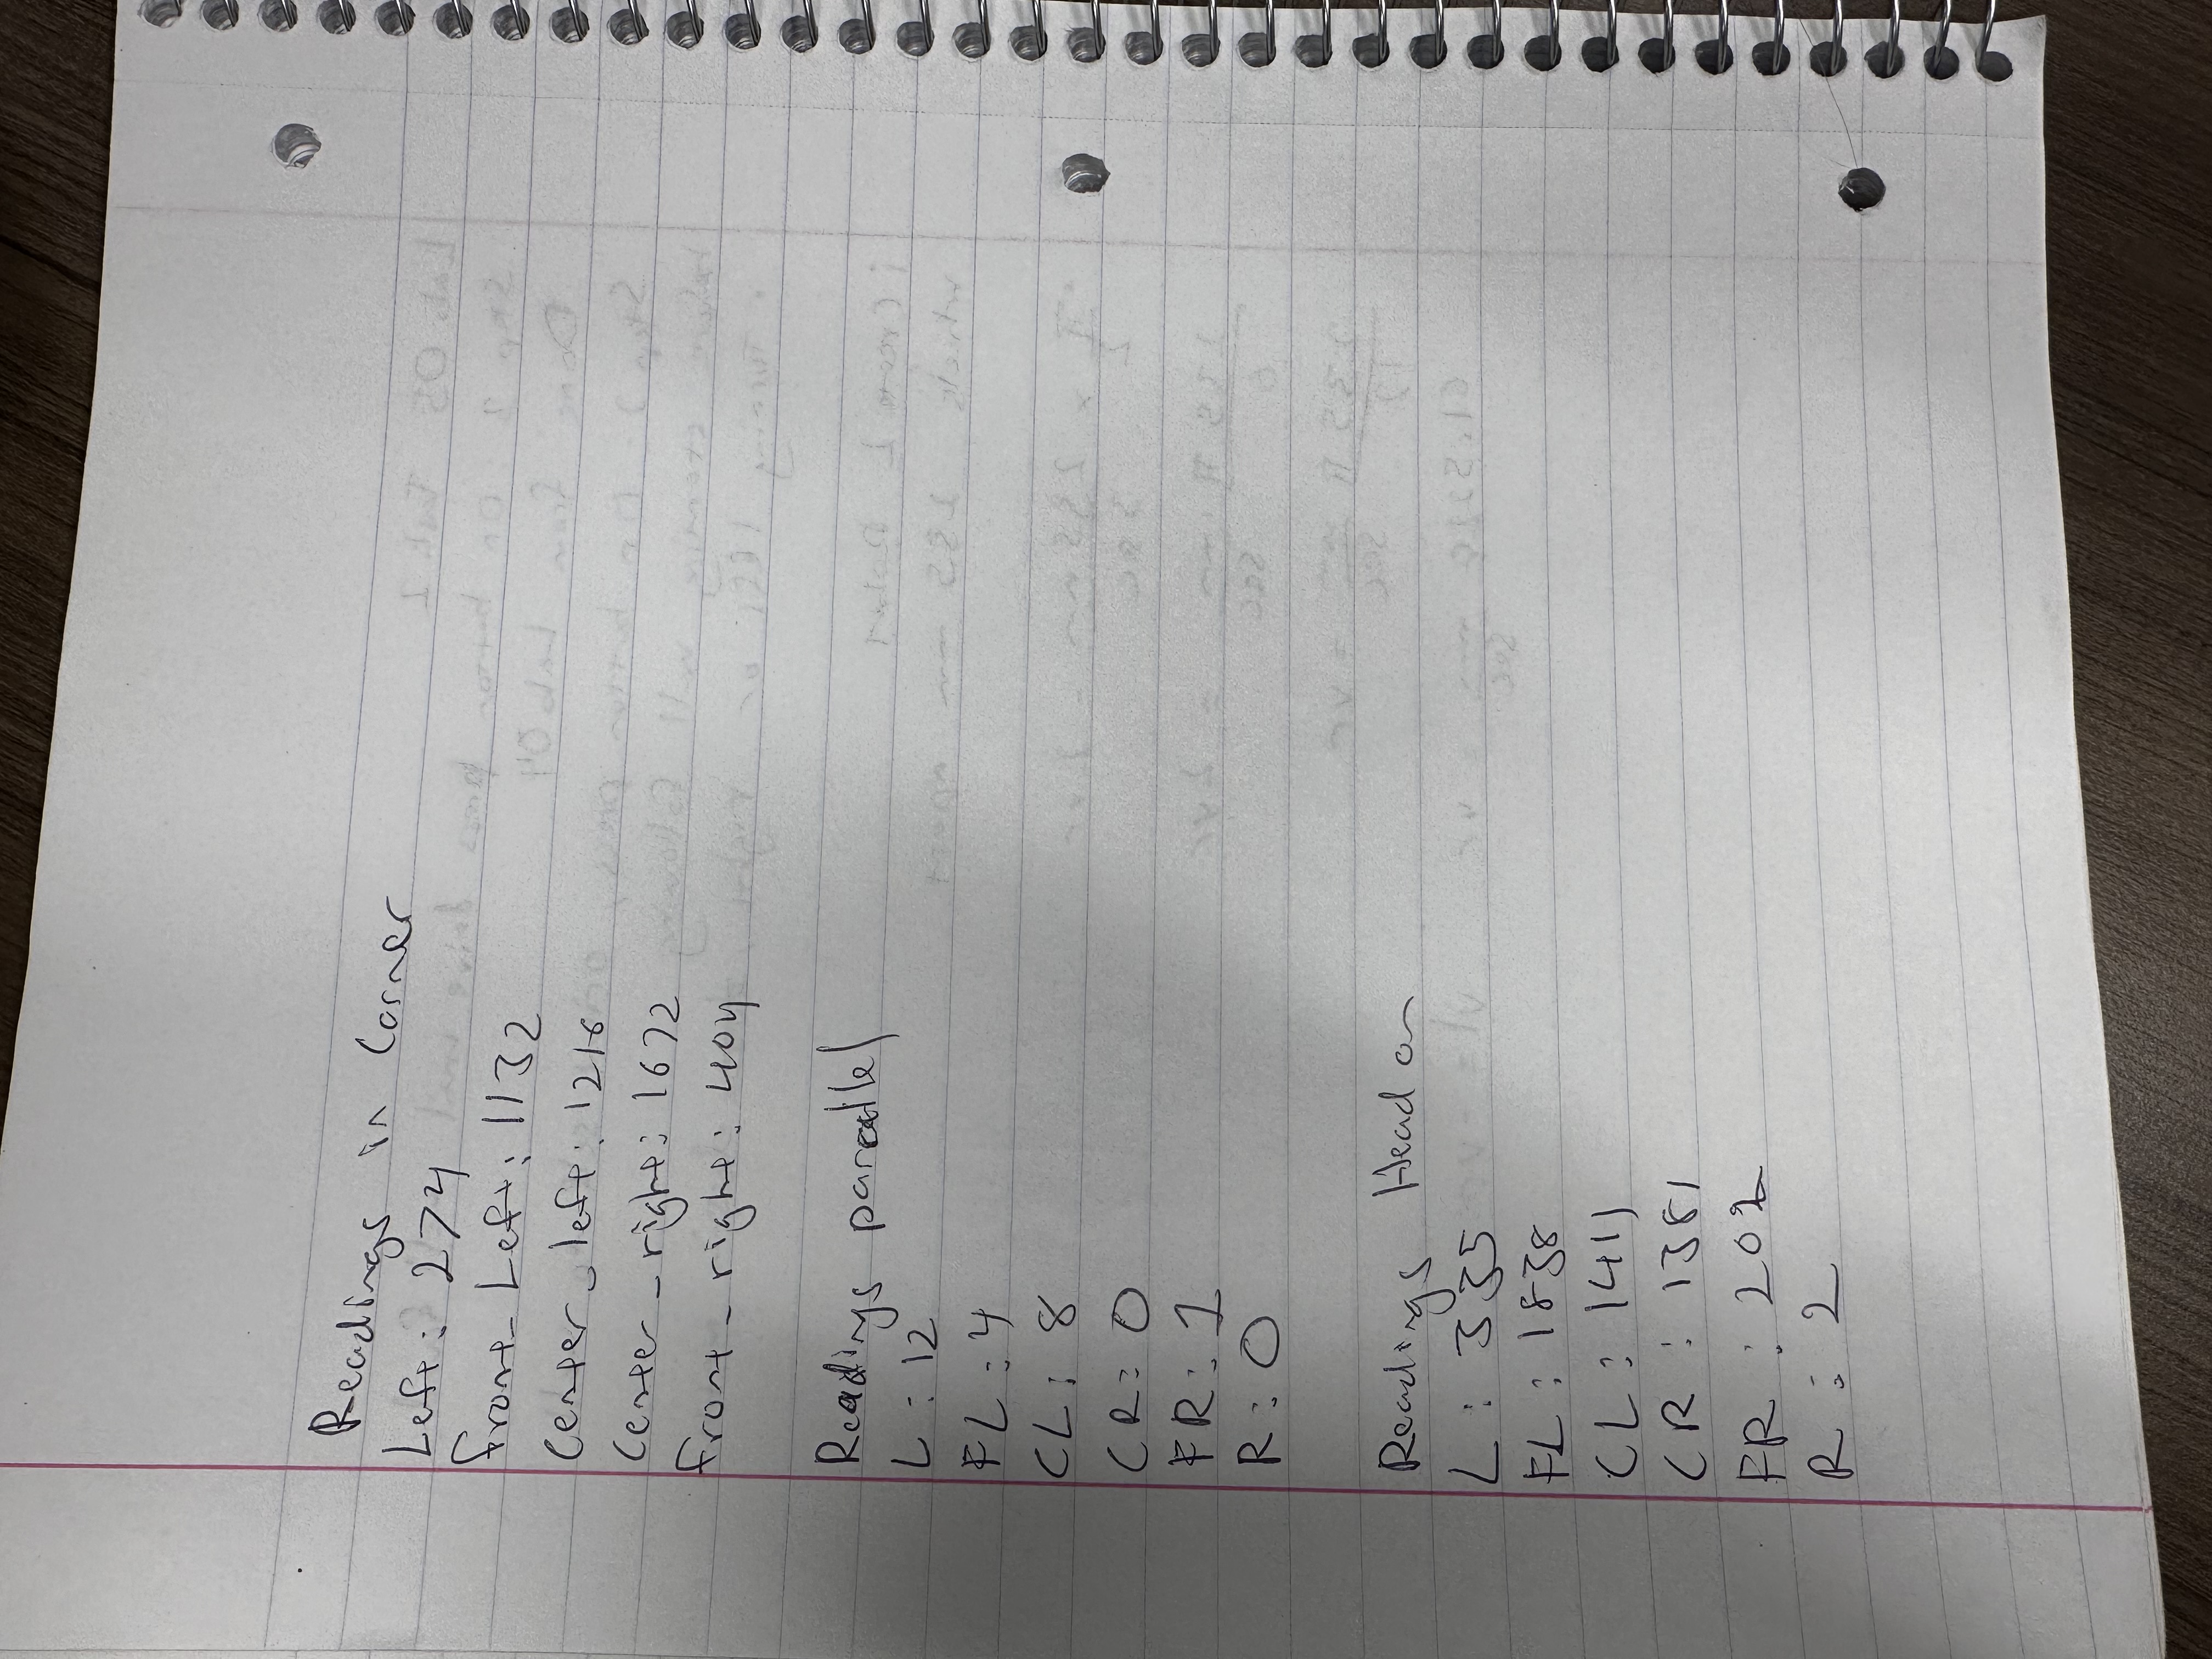 Readings in Corner
Left: 274
front_Left: 1132
Center_left: 1216
Center_right: 1672
front_right: 404
Readings parallel
L: 12
FL: 4
CL: 8
CR: 0
FR: 1
R: 0
Readings Head on
L: 335
FL: 1838
CL: 1411
CR: 1381
FR: 202
R: 2